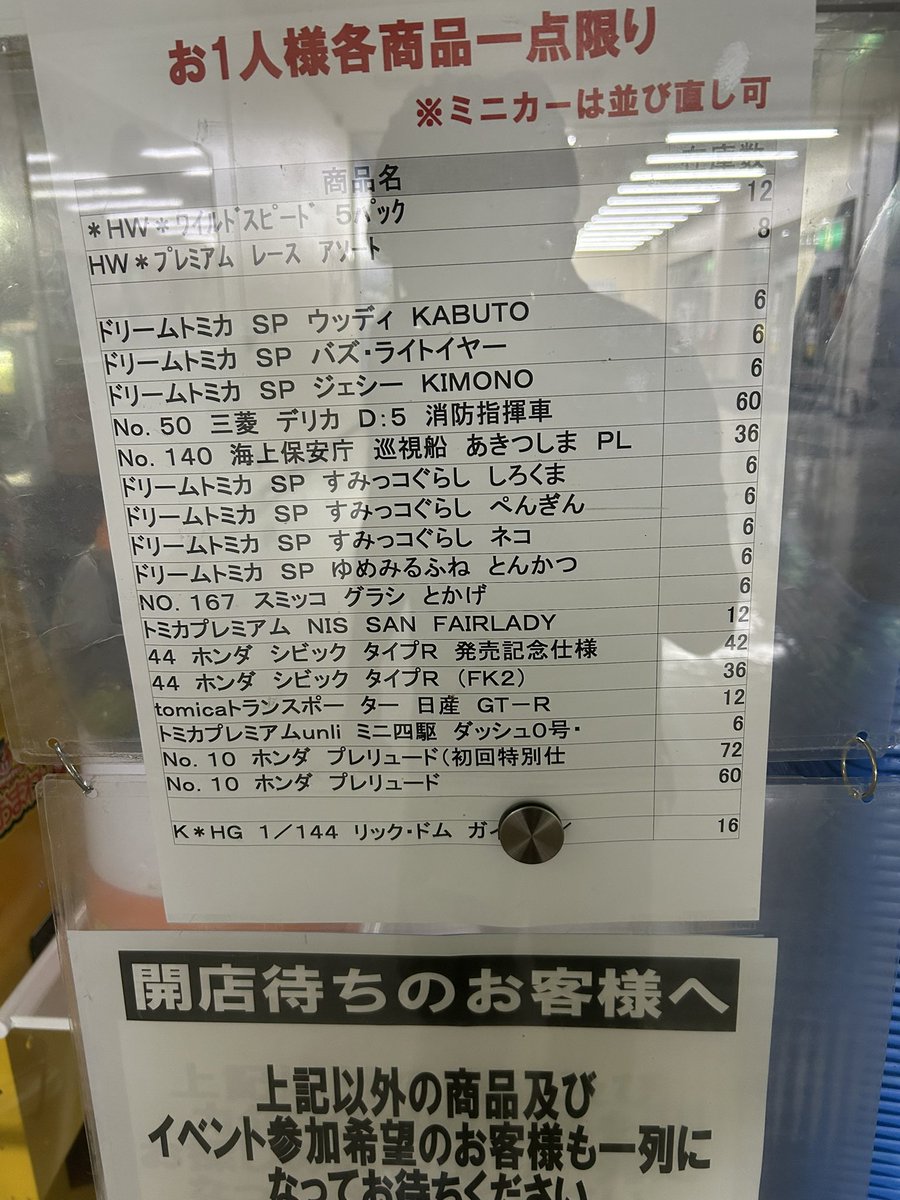 お1人様各商品一点限り
※ミニカーは並び直し可
商品名 在庫数
*HW*ワイルドスピード 5パック 12
HW*プレミアム レース アソート 8
ドリームトミカ SP ウッディ KABUTO 6
ドリームトミカ SP バズ・ライトイヤー 6
ドリームトミカ SP ジェシー KIMONO 6
No.50 三菱 デリカ D:5 消防指揮車 60
No.140 海上保安庁 巡視船 あきつしま PL 36
ドリームトミカ SP すみっコぐらし しろくま 6
ドリームトミカ SP すみっコぐらし ぺんぎん 6
ドリームトミカ SP すみっコぐらし ネコ 6
ドリームトミカ SP ゆめみるふね とんかつ 6
NO.167 スミッコ グラシ とかげ 6
トミカプレミアム NIS SAN FAIRLADY 12
44 ホンダ シビック タイプR 発売記念仕様 42
44 ホンダ シビック タイプR (FK2) 36
tomicaトランスポー ター 日産 GT-R 12
トミカプレミアムunli ミニ四駆 ダッシュ0号・ 6
No.10 ホンダ プレリュード(初回特別仕 72
No.10 ホンダ プレリュード 60
K*HG 1/144 リック・ドム 16
開店待ちのお客様へ
上記以外の商品及び
イベント参加希望のお客様も一列に
なってお待ちください